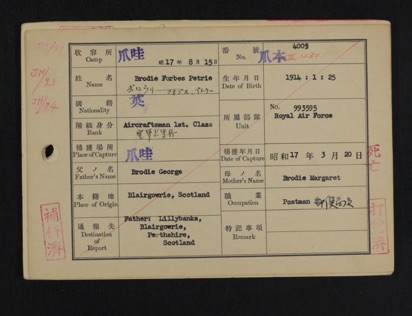 收容所
Camp
爪哇
昭17年8月15日
番號
No.
爪本
4003
姓名
Name
Brodie Forbes Petrie
生年月日
Date of Birth
1914:1:25
國籍
Nationality
英
所屬部隊
Unit
No. 993595
Royal Air Force
階級身分
Rank
Aircraftsman 1st. Class
捕獲場所
Place of Capture
爪哇
捕獲年月日
Date of Capture
昭和17年3月20日
父ノ名
Father's Name
Brodie George
母ノ名
Mother's Name
Brodie Margaret
本籍地
Place of Origin
Blairgowrie, Scotland
職業
Occupation
Postman
通報先
Destination of Report
Father: Lillybanks,
Blairgowrie,
Perthshire,
Scotland
特記事項
Remark
死亡